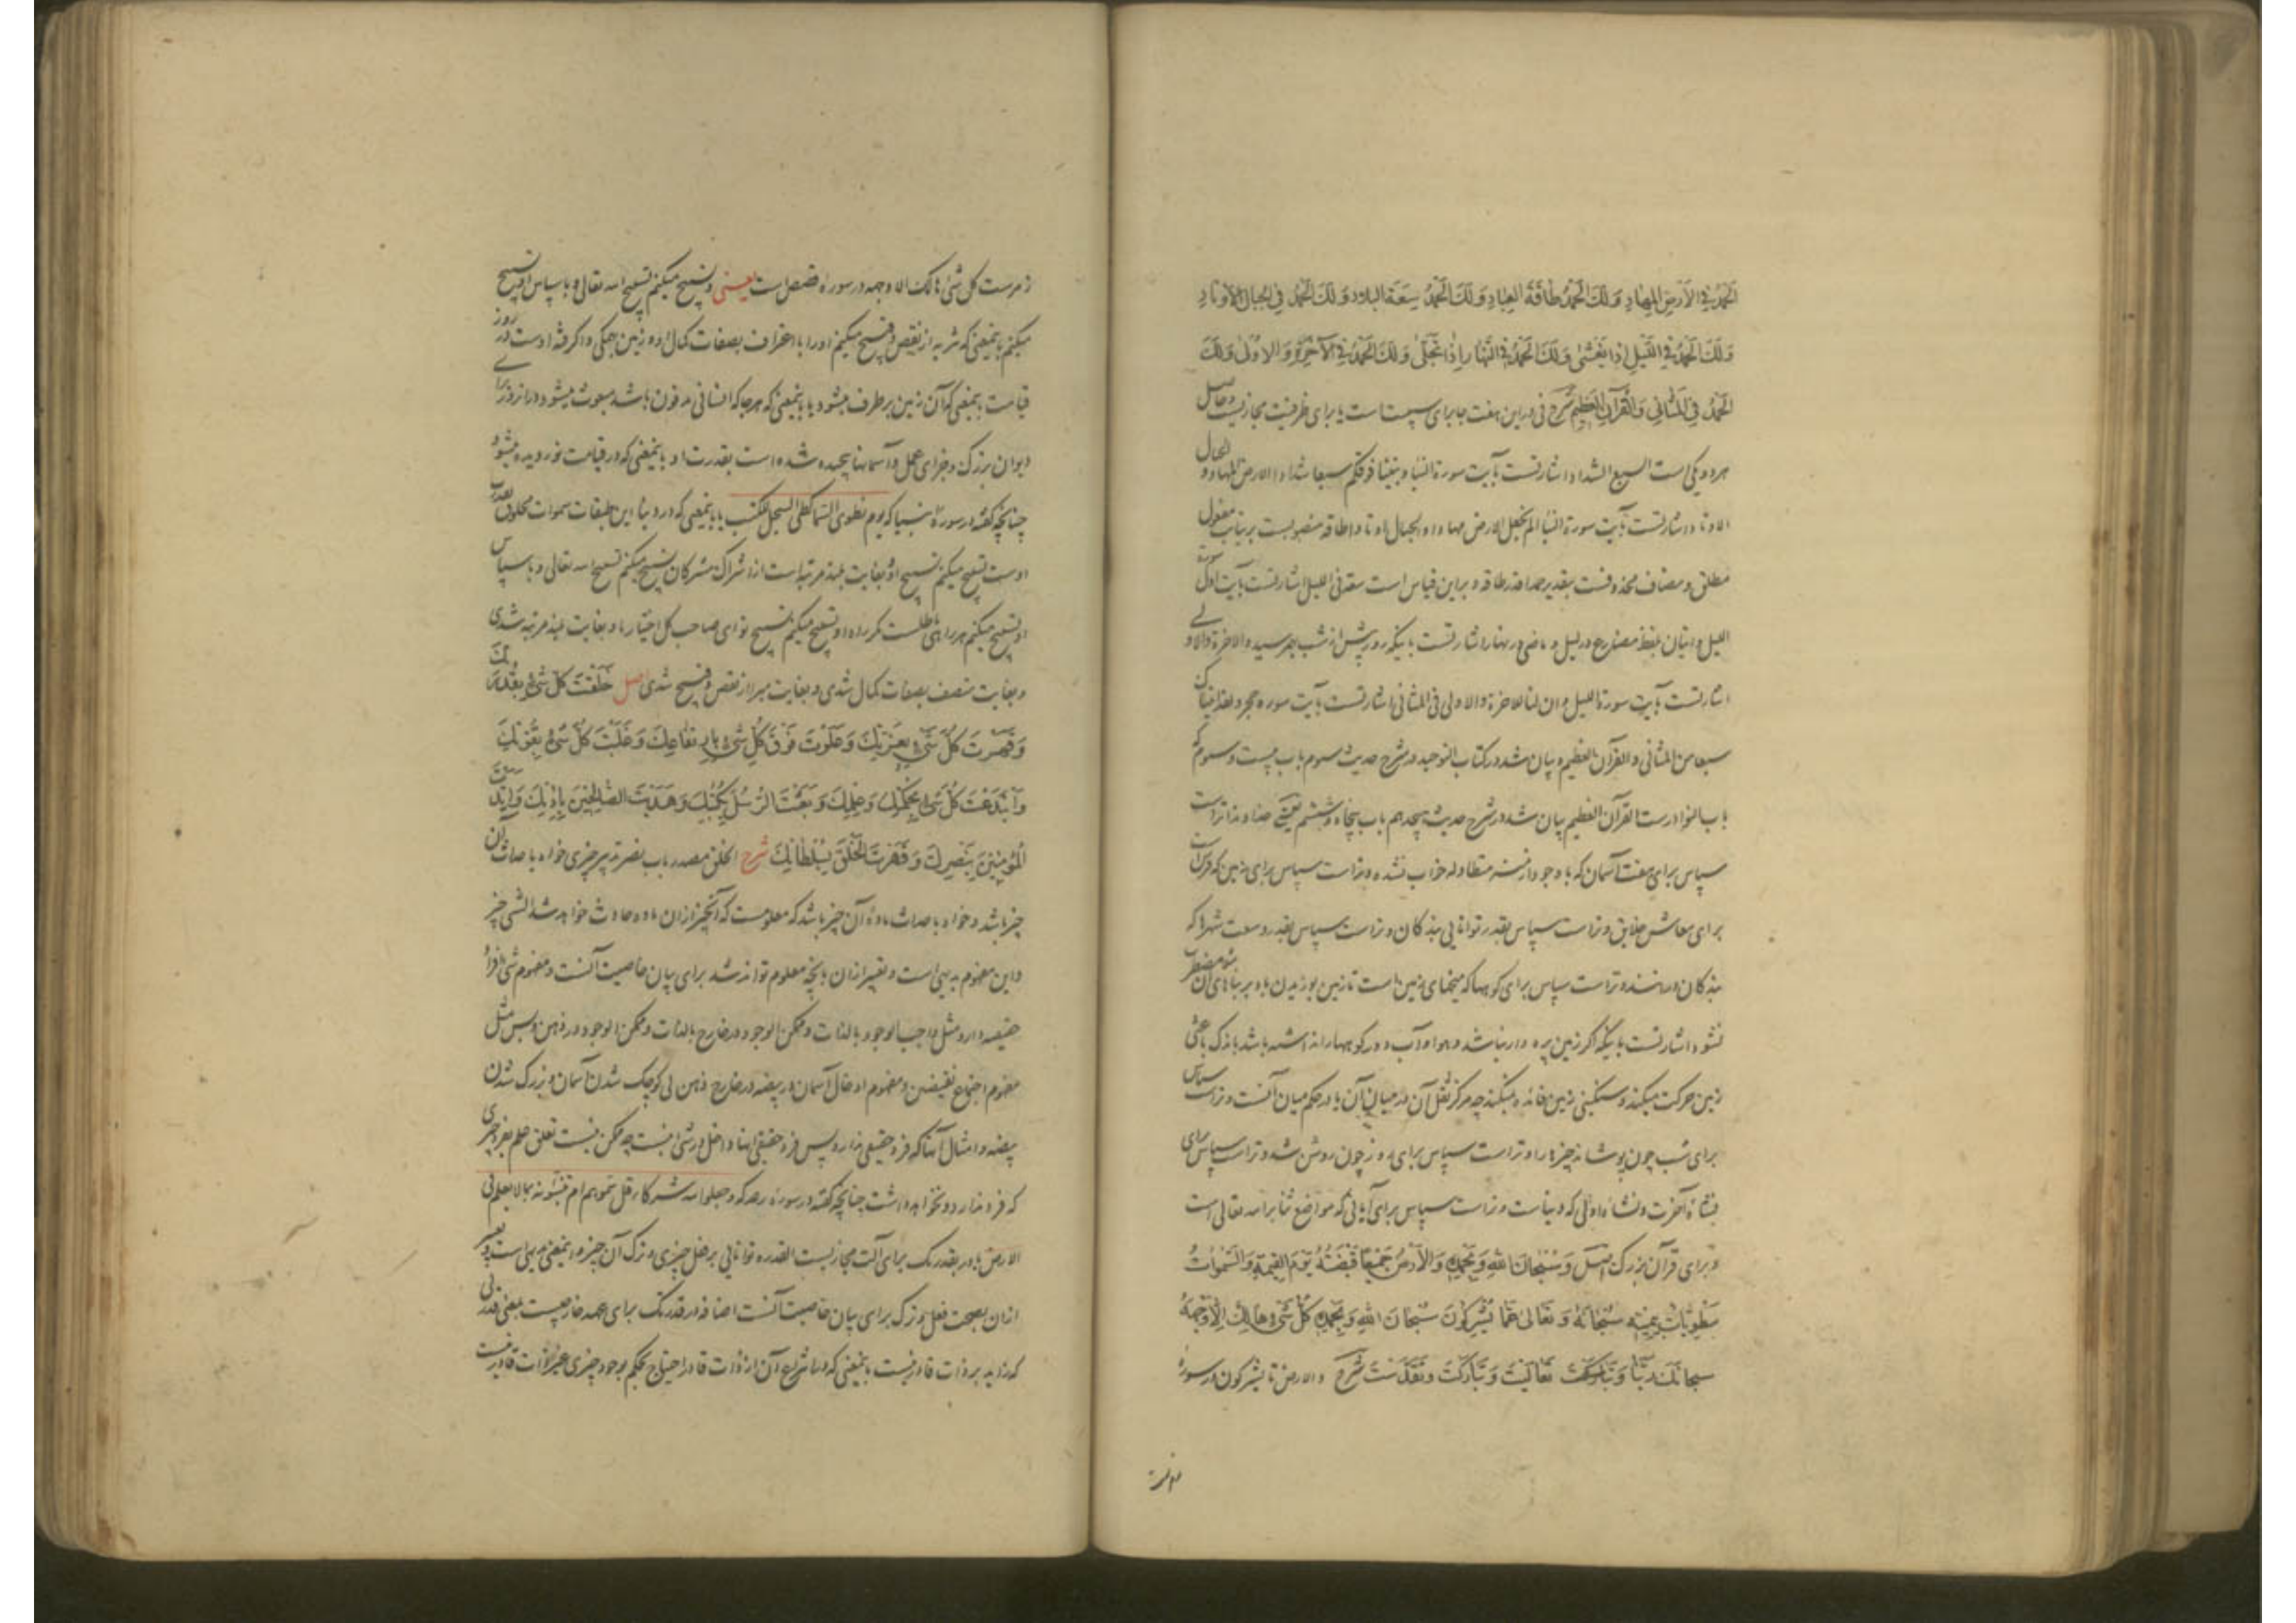 الْحَمْدُ فِي الْأَرْضِ الْمِهَادِ وَلَكَ الْحَمْدُ طَاقَةَ الْعِبَادِ وَلَكَ الْحَمْدُ سَعَةَ الْبِلَادِ وَلَكَ الْحَمْدُ فِي الْجِبَالِ الْأَوْتَادِ
وَلَكَ الْحَمْدُ فِي اللَّيْلِ إِذَا يَغْشَى وَلَكَ الْحَمْدُ فِي النَّهَارِ إِذَا تَجَلَّى وَلَكَ الْحَمْدُ فِي الْآخِرَةِ وَالْأُولَى وَلَكَ
الْحَمْدُ فِي الْمَثَانِي وَالْقُرْآنِ الْعَظِيمِ شرح فی در این هفت جا برای سببیت است یا برای ظرفیت مجازیست و حاصل
هر دو یکی است السبع الشداد اشارتست بآیت سورة النبا و بنینا فوقکم سبعا شدادا الارض المهاد و الجبال
الاوتاد اشارتست بآیت سورة النبا الم نجعل الارض مهادا و الجبال اوتادا طاقة منصوبست بر نیابت مفعول
مطلق و مضاف محذوفست بتقدیر حمدا قدر طاقة و براین قیاس است سعة فی اللیل اشارتست بآیت اول سورة
اللیل و اتیان بلفظ مضارع در لیل و ماضی در نهار اشارتست باینکه روز پیش از شب بهم رسید و الاخرة و الاولی
اشارتست بآیت سورة اللیل و ان لنا للاخرة و الاولی فی المثانی اشارتست بآیت سوره حجر و لقد آتیناک
سبعا من المثانی و القرآن العظیم و بیان شد در کتاب التوحید در شرح حدیث سوم باب بیست و سوم که
باب النوادر است القرآن العظیم بیان شد در شرح حدیث هجدهم باب پنجاه و ششم یعنی خداوندا تراست
سپاس برای هفت آسمان که با وجود ازمنه متطاوله خراب نشده و تراست سپاس برای زمین که
برای معاش خلایق و تراست سپاس بقدر توانایی بندگان و تراست سپاس بقدر وسعت شهرها که
بندگان در آنند و تراست سپاس برای کوهها که میخهای زمین است تا زمین بوزیدن باد بر بناهای آن مضطرب
نشود اشارتست باینکه اگر زمین پره دار نباشد و هوا و آب در کوهها راه نداشته باشد باندک باعثی
زمین حرکت میکند و سنگینی زمین فائده نمیکند چه مرکز ثقل آن در میان آن یا در حکم میان آنست و تراست سپاس
برای شب چون پوشاند چیزها را و تراست سپاس برای روز چون روشن شد و تراست سپاس برای
نشاة آخرت و نشاة اولی که دنیاست و تراست سپاس برای آیاتی که مواضع ثنا بر الله تعالی است
و برای قرآن بزرگ اصل وَسُبْحَانَ اللَّهِ وَبِحَمْدِهِ وَالْأَرْضُ جَمِيعًا قَبْضَتُهُ يَوْمَ الْقِيمَةِ وَالسَّمٰوَاتُ
مَطْوِيَّاتٌ بِيَمِينِهِ سُبْحَانَهُ وَتَعَالَى عَمَّا يُشْرِكُونَ سُبْحَانَ اللَّهِ وَبِحَمْدِهِ كُلُّ شَيْءٍ هَالِكٌ إِلَّا وَجْهَهُ
سُبْحَانَكَ رَبَّنَا وَتَعَالَيْتَ وَتَبَارَكْتَ وَتَقَدَّسْتَ شرح و الارض تا یشرکون در سورۀ
زمرست کل شئ هالک الا وجهه در سورۀ قصص است یعنی و تسبیح میکنم تسبیح الله تعالی و با سپاس او تسبیح
میکنم باینمعنی که تنزیه از نقص و قبیح میکنم او را با اعتراف بصفات کمال او و زمین همگی واگرفتۀ اوست در روز
قیامت باینمعنی که آن زمین بر طرف میشود یا باینمعنی که هر جا که انسانی مدفون باشد مبعوث میشود در آنروز برای
دیوان بزرگ و جزای عمل و آسمانها پیچیده شده است بقدرت او باینمعنی که در قیامت نوردیده میشود
چنانچه گفته در سورۀ انبیا که یوم نطوی السما کطی السجل للکتب یا باینمعنی که در دنیا این طبقات سموات مخلوق بقدرت
اوست تسبیح میکنم تسبیح او بغایت بلند مرتبه است از اشراک مشرکان تسبیح میکنم تسبیح الله تعالی و با سپاس
او تسبیح میکنم هر راهی باطلست مگر راه او تسبیح میکنم تسبیح تو ای صاحب کل اختیار ما و بغایت بلند مرتبه شدی
و بغایت متصف بصفات کمال شدی و بغایت مبرا از نقص و قبیح شدی اصل خَلَقْتَ كُلَّ شَيْءٍ بِقُدْرَتِكَ
وَقَهَرْتَ كُلَّ شَيْءٍ بِعِزَّتِكَ وَعَلَوْتَ فَوْقَ كُلِّ شَيْءٍ بِارْتِفَاعِكَ وَغَلَبْتَ كُلَّ شَيْءٍ بِقُوَّتِكَ
وَابْتَدَعْتَ كُلَّ شَيْءٍ بِحِكْمَتِكَ وَعِلْمِكَ وَبَعَثْتَ الرُّسُلَ بِكُتُبِكَ وَهَدَيْتَ الصَّالِحِينَ بِإِذْنِكَ وَأَيَّدْتَ
الْمُؤْمِنِينَ بِنَصْرِكَ وَقَهَرْتَ الْخَلْقَ بِسُلْطَانِكَ شرح الخلق مصدر باب نصر تدبیر چیزی خواه باحداث آن
چیز باشد و خواه باحداث مادۀ آن چیز باشد که معلومست که آنچیز ازان ماده حادث خواهد شد الشی چیز
و این مفهوم بدیهی است و تعبیر ازان بآنچه معلوم تواند شد برای بیان خاصیت آنست و مفهوم شی افراد
حقیقیه دارد مثل واجب الوجود بالذات و ممکن الوجود در خارج بالذات و ممکن الوجود در ذهن و بس مثل
مفهوم اجتماع نقیضین و مفهوم ادخال آسمان در بیضه در خارج ذهن بی کوچک شدن آسمان و بزرگ شدن
بیضه و امثال آنها که فرد حقیقی ندارد پس فرد حقیقی اینها داخل در شئ نیست چه ممکن نیست تعلق علم بفرد چیزی
که فرد ندارد و نخواهد داشت چنانچه گفته در سورۀ رعد که و جعلوا لله شرکاء قل سموهم ام تنبئونه بما لا یعلم فی
الارض با در بقدرتک برای آلت مجازیست القدره توانایی بر فعل چیزی و ترک آن چیز و اینمعنی بدیهی است و تعبیر
ازان بصحت فعل و ترک برای بیان خاصیت آنست اضافه در قدرتک برای عهد خارجیست بمعنی قدرتی
که زاید بر ذات قادر نیست باینمعنی که در انتزاع آن از ذات قادر احتیاج بحکم بوجود چیزی غیر ذات قادر نیست